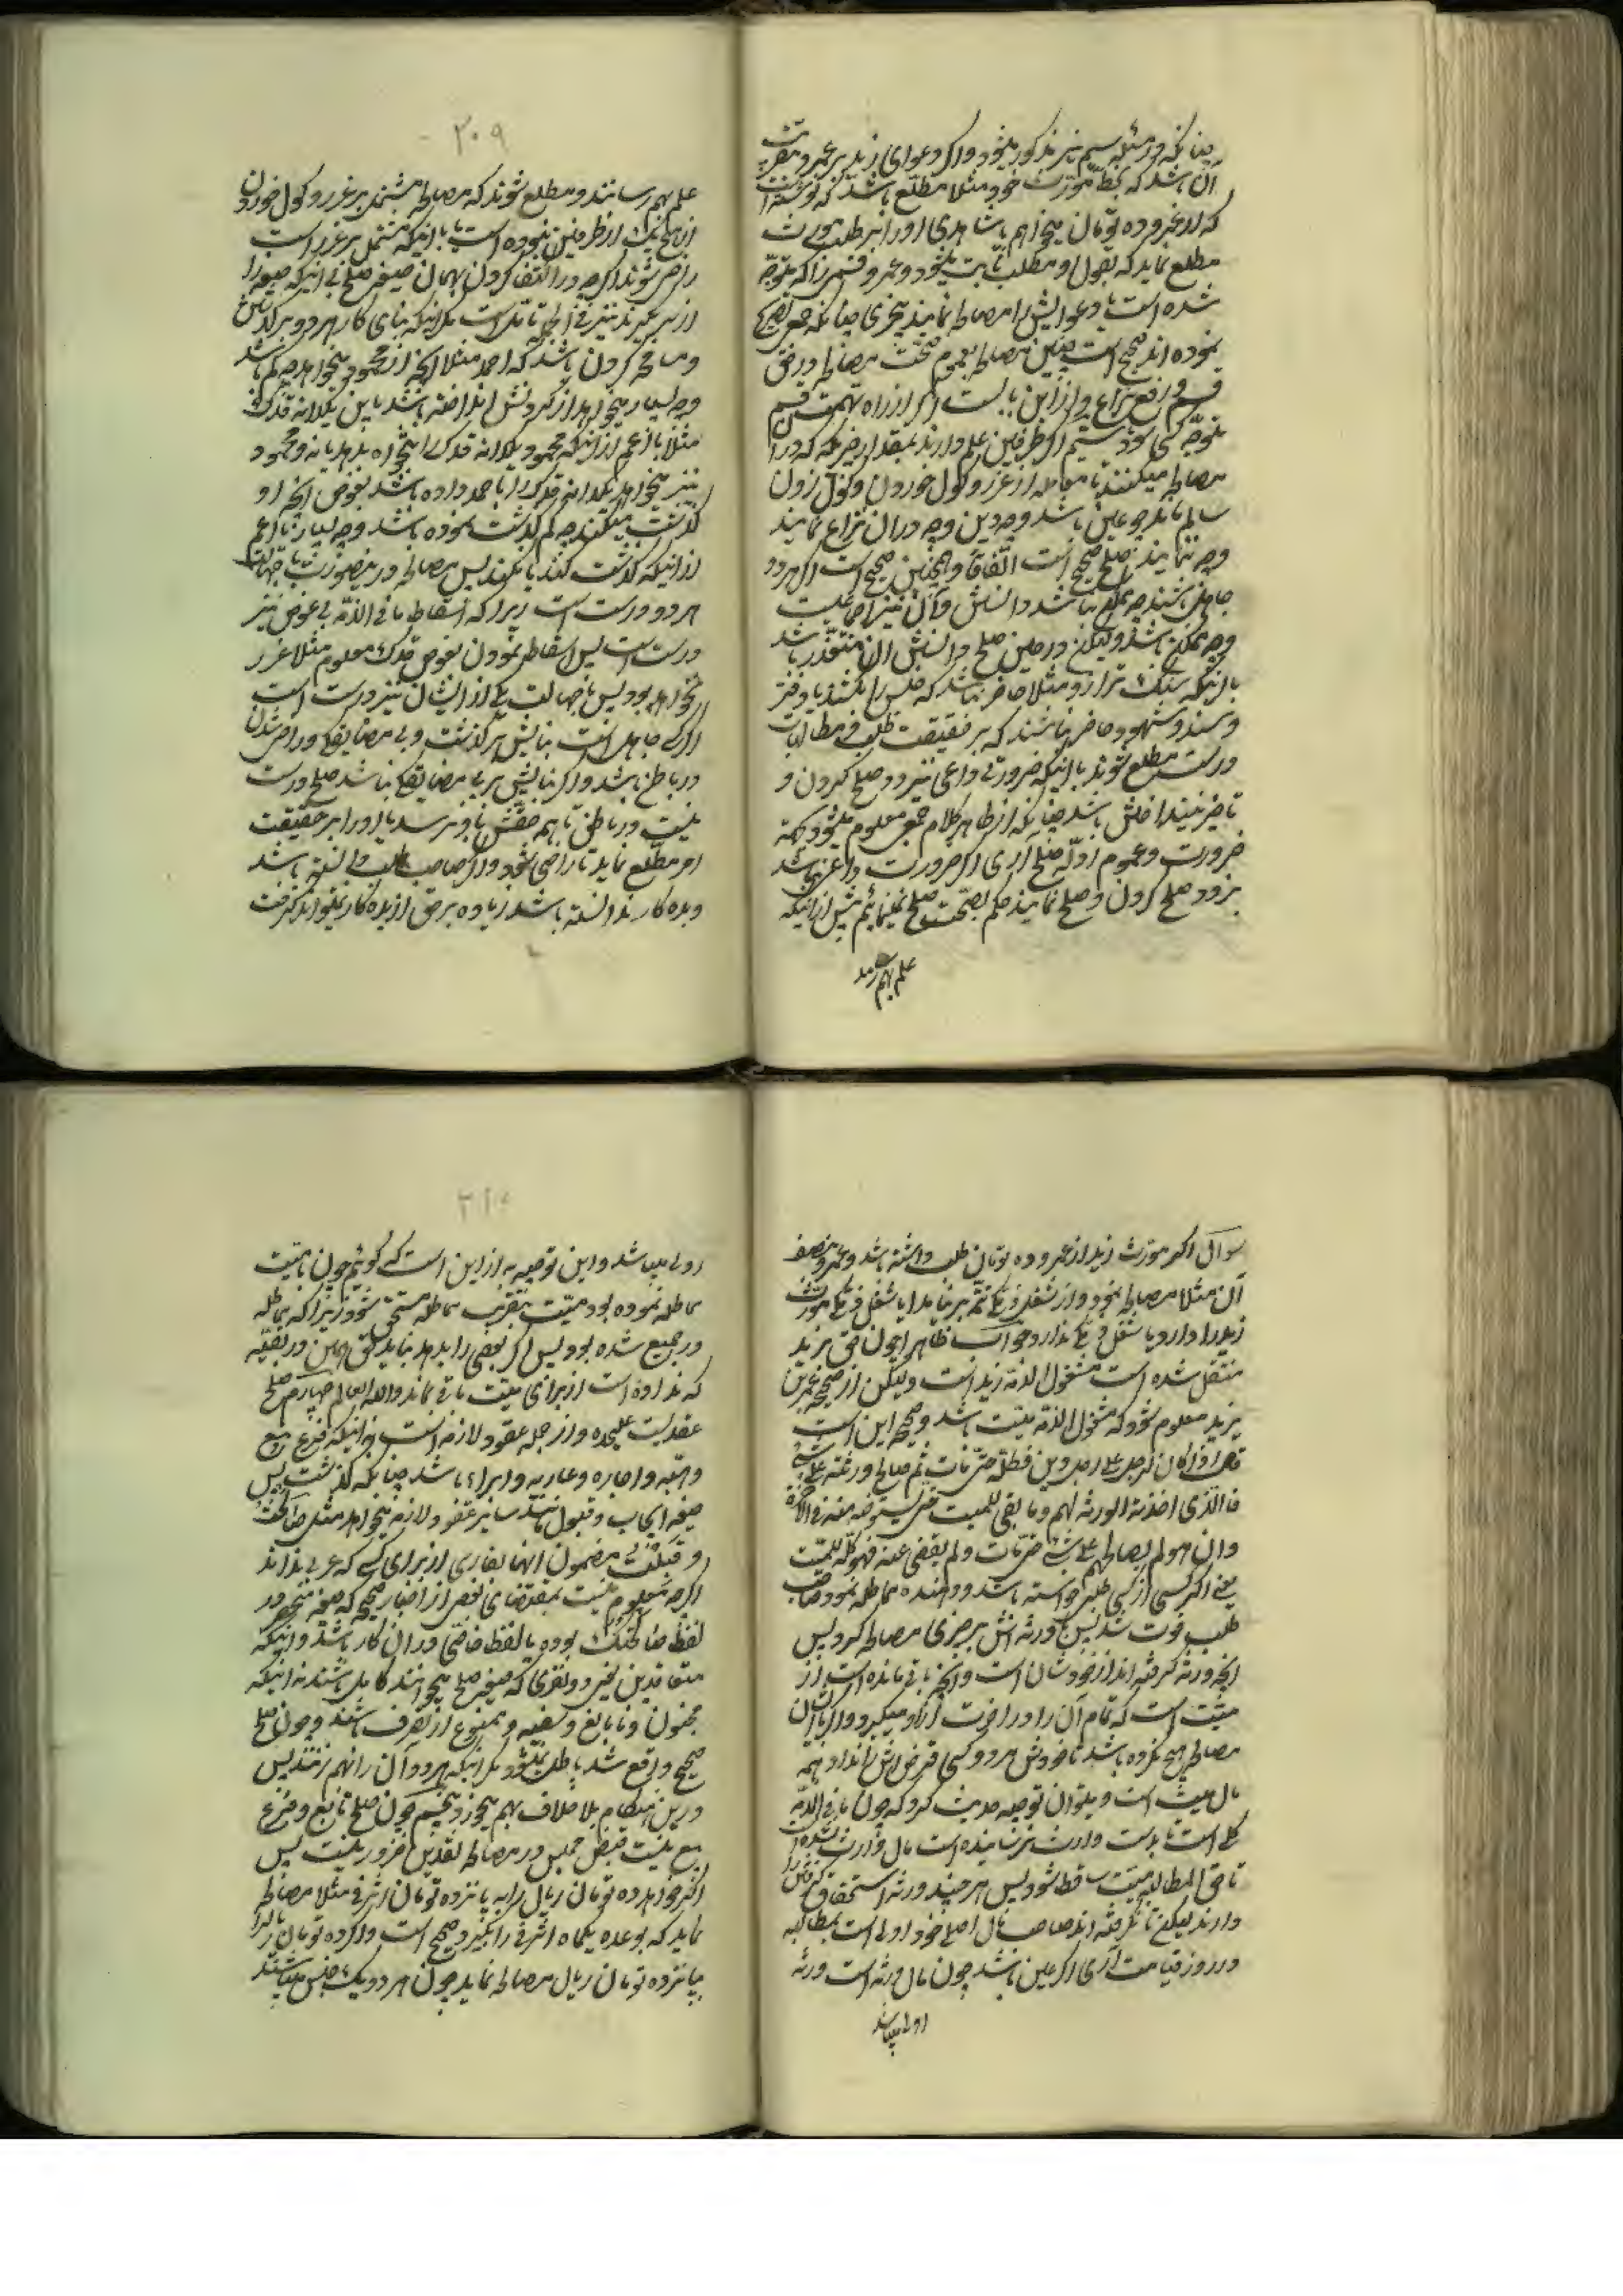 چنانکه در مسئله سیم نیز مذکور میشود و اگر دعوای زید بر عمرو مقرّ بـ
آن باشد که بخط مورّث خود مثلا مطلع باشد که نوشته است
که از عمرو ده تومان میخواهم یا شاهدی او را بر طلب مورث
مطلع نماید که بقول او مطلب ثابت میشود و عمرو قسمرا که متوجّه
شده است یا دعوایش را مصالحه نمایند بچیزی چنانکه جمعی تصریح
نموده اند صحیح است چنین مصالحه بعموم صحّت مصالحه در حق
قسم و رفع نزاع
متوجّه کسی شود سیّم اگر طرفین علم دارند بمقدار چیزیکه که در آن
مصالحه میکنند تا معامله از غرر و گول خوردن و گول زدن
سالم ماند چه عین باشد و چه دین و چه در آن نزاع نمایند
و چه ننمایند صلح صحیح است اتّفاقا و همچنین صحیح است اگر هر دو
جاهل باشند چه ممکن نباشد دانستنش و آن نیز اجماعیست
و چه ممکن باشد ولیکن در حین صلح دانستنش ان متعذّر باشد
باینکه سنگ ترازو مثلا حاضر نباشد که جنس را بکشند یا دفتر
و سند و شهود حاضر نباشند که بر حقیقت طلب و مطالبات
درست مطلع شوند یا اینکه ضرورتی داعی نیز زود صلح کردن و
تاخیر نینداختنش باشد چنانکه از ظاهر کلام جمعی معلوم میشود بجهة
ضرورت و عموم ادلّه صلح آری اگر ضرورت داعی نباشد
بزود صلح کردن و صلح نمایند حکم بصحّت صلح نمینمائیم پیش از آنکه
علم بهم رسد
۲۰۹
علم بهم رسانند و مطلع شوند که مصالحه مشتمل بر غرر و گول خوردن
از هیچ یک از طرفین نبوده است یا باینکه مشتمل بر غرر است
راضی شوند اگر چه در اکتفا کردن بهمان صیغه صلح بی اینکه صیغه را
از سر گیرند نیز فی الجمله تاملی است مگر اینکه بنای کار هر دو بر گذشت
و مسامحه کردن باشد که احمد مثلا آنچه از محمود میخواهد چه کم باشد
و چه بسیار میخواهد از گردنش انداخته باشد باین یکدانه قدک
مثلا باز اعم از اینکه محمود یکدانه قدک را بخواه بدهد یا نه و محمود
نیز میخواهد یکدانه قدک را باحمد داده باشد بعوض آنچه او
گذشت میکند چه کم گذشت نموده باشد و چه بسیار باز اعم
از اینکه گذشت کند یا نکند پس مصالحه در اینصورت با جهالت
هر دو درست است زیرا که اسقاط ما فی الذمّه بی عوض نیز
درست است پس اسقاط نمودن بعوض قدک معلوم مثلا غرر
نخواهد بود پس با جهالت یکی از ایشان نیز درست است
اگر که جاهل است بنایش بر گذشت و بی مضایقگی و راضی شدن
در باطن باشد و اگر بنایش بر بی مضایقگی نباشد صلح درست
نیست در باطن تا همه حقش باو نرسد یا او را بر حقیقت
امر مطّلع نماید تا راضی شود و اگر صاحب طلب دانسته باشد
و بده کار ندانسته باشد زیاده بر حق از بده کار نمیتواند گرفت
سوال اگر مورّث زید از عمرو ده تومان طلب داشته باشد و عمرو بنصف
آن مثلا مصالحه نمود و از شغل ذمّگی تتمّه بر نیامد ایا شغل ذمّگی مورّث
زید را دارد یا شغل ذمّگی ندارد جواب ظاهرا چون حق بزید
منتقل شده است مشغول الذمّه زید است ولیکن از صحیحه عمر بن
یزید معلوم شود که مشغول الذمّه میّت باشد و صحیحه این است
قال اذا کان لرجل علی رجل دین فمطله حتّی مات ثم صالح ورثته علی شئ
فالّذی اخذته الورثة لهم و ما بقی للمیت حتی یستوفیه منه فی الاخرة
و ان هو لم یصالحهم علی شئ حتّی مات و لم یقض عنه فهو کلّه للمیّت
یعنی اگر کسی از کسی طلب خواسته باشد و دهنده مماطله نمود و صاحب
طلب فوت شد پس ورثه اش بر چیزی مصالحه کرد پس
آنچه ورثه گرفته اند از خودشان است و آنچه باقی مانده است از
میّت است که تمام آن را در اخرت از او میگیرد و اگر با آن
مصالحه هیچ نکرده باشد تا خودش مرد و کسی قرض اش را نداد همه
مال میّت است و میتوان توجیه حدیث کرد که چون ما فی الذمّه
کلّی است تا بدست وارث نرسانیده است مال وارث نشده
تا حق المطالبه میّت ساقط شود پس هر چند ورثه استحقاق گرفتن را
دارند لیکن تا نگرفته اند صاحب مال اصلی خود اولی است بمطالبه
در روز قیامت آری اگر عین باشد چون مال ورثه است ورثه
اولی میباشد
۲۱۰
اولی میباشد و این توجیه به از این است که گوئیم چون با میّت
مماطله نموده بود میّت بتقریب مماطله مستحق شود زیرا که مماطله
در جمیع شده بود پس اگر بعضی را بدهد نباید حق همین در بقیّه
که نداده است از برای میّت باقی ماند واللّه العالم چهارم صلح
عقدیست علیحده و از جمله عقود لازمه است نه اینکه فرع بیع
و هبه و اجاره و عاریه و ابراء باشد چنانکه گذشت پس
صیغه ایجاب و قبول مانند سایر عقود لازمه میخواهد مثل صالحتک
و قبلت بی مضمون انها بفارسی از برای کسی که عربی نداند
اگر چه معلوم نیست بمقتضای بعضی از اخبار صحیحه که صیغه منحصر در
لفظ صالحتک بوده یا لفظ خاصّی در ان کار باشد و اینکه
متعاقدین یعنی دو نفری که صیغه صلح میخوانند کامل باشند نه اینکه
مجنون و نابالغ و سفیه و ممنوع از تصرف باشند و چون صلح
صحیح واقع شد باطل نمیشود مگر اینکه هر دو آن را بهم زنند پس
در این هنگام بلا خلاف بهم میخورد پنجم چون صلح تابع و فرع
بیع نیست قبض مجلس در مصالحه نقدین ضرور نیست پس
اگر خواهد ده تومان ریال را به پانزده تومان اشرفی مثلا مصالحه
نماید که بوعده یکماه اشرفی را بگیرد صحیح است و اگر ده تومان ریال را
بپانزده تومان ریال مصالحه نماید چون هر دو یک جنس میباشند